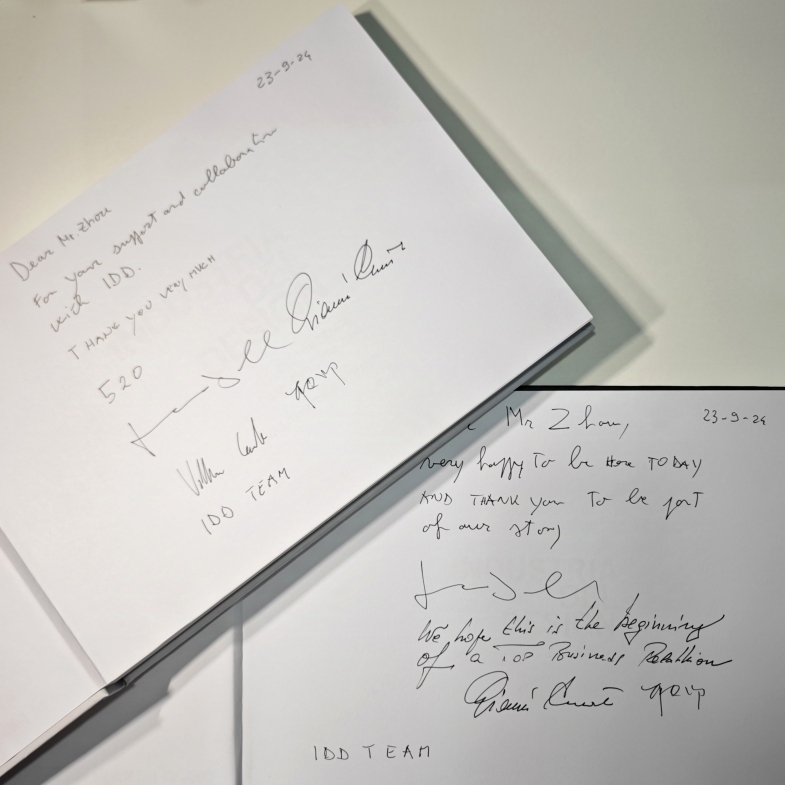 23-9-24
Dear Mr. Zhou
For your support and collaboration
with IDD.
THANK YOU VERY MUCH
520
IDD TEAM
Mr Zhou,
23-9-24
very happy To be Here TODAY
AND THANK you To be part
of our story
We hope this is the beginning
of a TOP Business
IDD TEAM